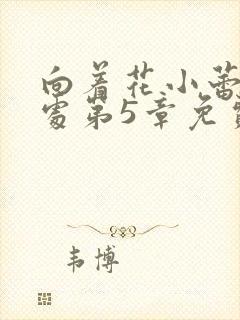 向着花小蕾
处第5章免费
韦博